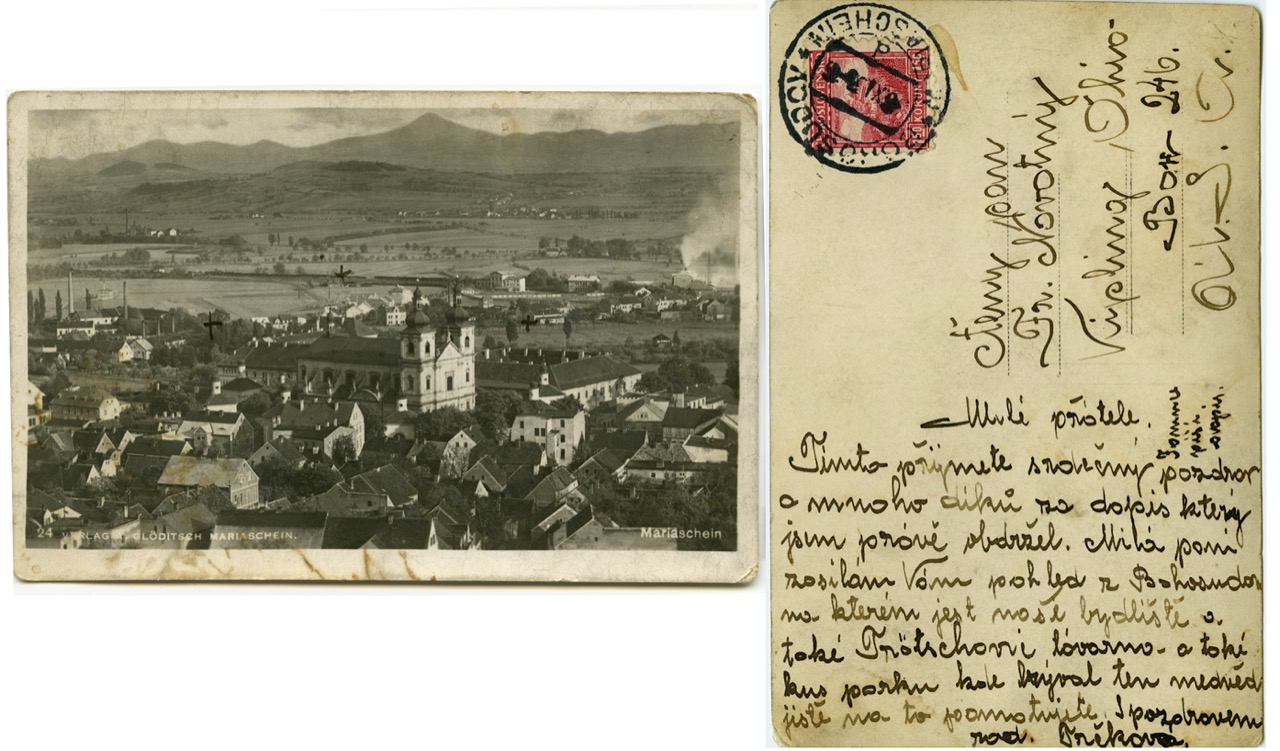 24 VERLAG A. GLÖDITSCH MARIASCHEIN.
Mariaschein
BOHOSUDOV
MARIASCHEIN
KORUNA
pan
Fr. Novotný
Ohio
Box 246.
Milé přátele.
Tímto přijmete srdečný pozdrav
a mnoho díků za dopis který
jsem právě obdržel. Milá paní
zasílám Vám pohled z Bohosudov
na kterém jest naše bydliště a
také továrna a také
kus parku kde býval ten medvěd
jistě na to pamatujete. S pozdravem
rod. Trčkova.